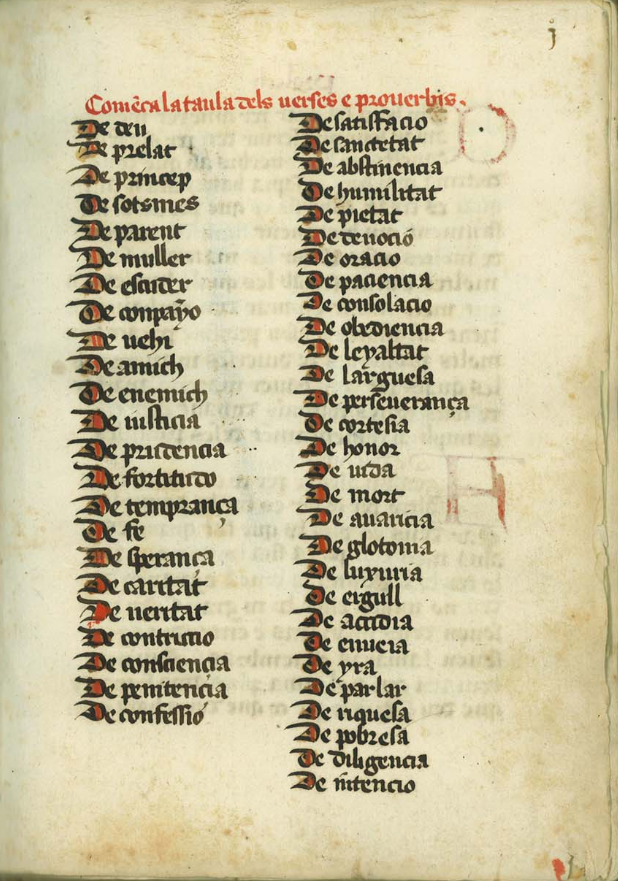 j
Comẽca la taula dels uerses e prouerbis.
De deu
De prelat
De princep
De sotsmes
De parent
De muller
De escuder
De conpayo
De uehi
De amich
De enemich
De iusticia
De prudencia
De fortitudo
De temprança
De fe
De sperança
De caritat
De ueritat
De contriccio
De consciencia
De penitencia
De confessió
De satisfacio
De sanctetat
De abstinencia
De humilitat
De pietat
De deuoció
De oracio
De paciencia
De consolacio
De obediencia
De leyaltat
De larguesa
De perseuerança
De cortesia
De honor
De uida
De mort
De auaricia
De glotonia
De luxuria
De ergull
De accidia
De enueia
De yra
De parlar
De riquesa
De pobresa
De diligencia
De ĩtencio